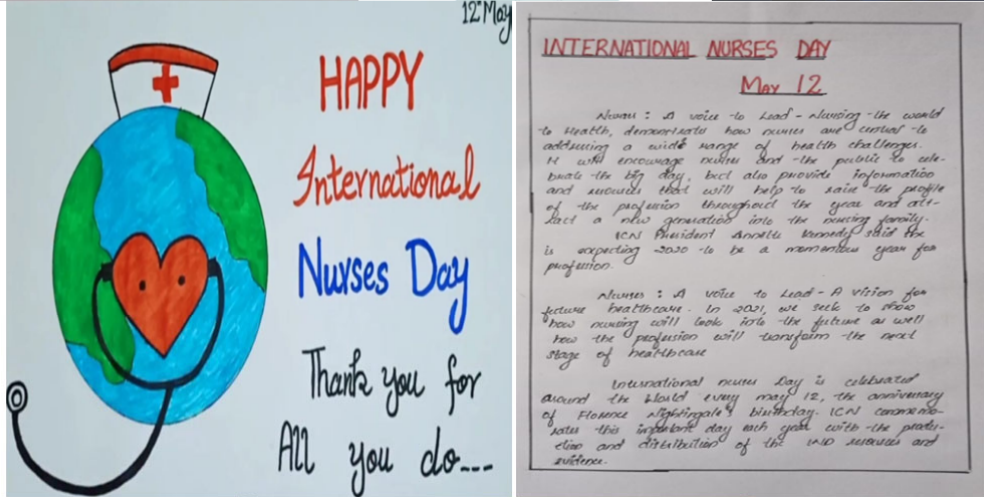 12th May
HAPPY
International
Nurses Day
Thank you for
All you do---
INTERNATIONAL NURSES DAY
MAY 12
Nurses : A voice to Lead - Nursing the world
to Health, demonstrates how nurses are central to
addressing a wide range of health challenges.
It will encourage nurses and the public to cele-
brate the big day, but also provide information
and resources that will help to raise the profile
of the profession throughout the year and att-
ract a new generation into the nursing family.
ICN President Annette Kennedy said the
is expecting 2020 to be a momentous year for
profession.
Nurses : A voice to Lead - A vision for
future healthcare. In 2021, we seek to show
how nursing will look into the future as well
how the profession will transform the next
stage of healthcare
International nurses Day is celebrated
around the World every may 12, the anniversary
of Florence Nightingale's birthday. ICN commemo-
rates this important day each year with the produc-
tion and distribution of the IND resources and
evidence.